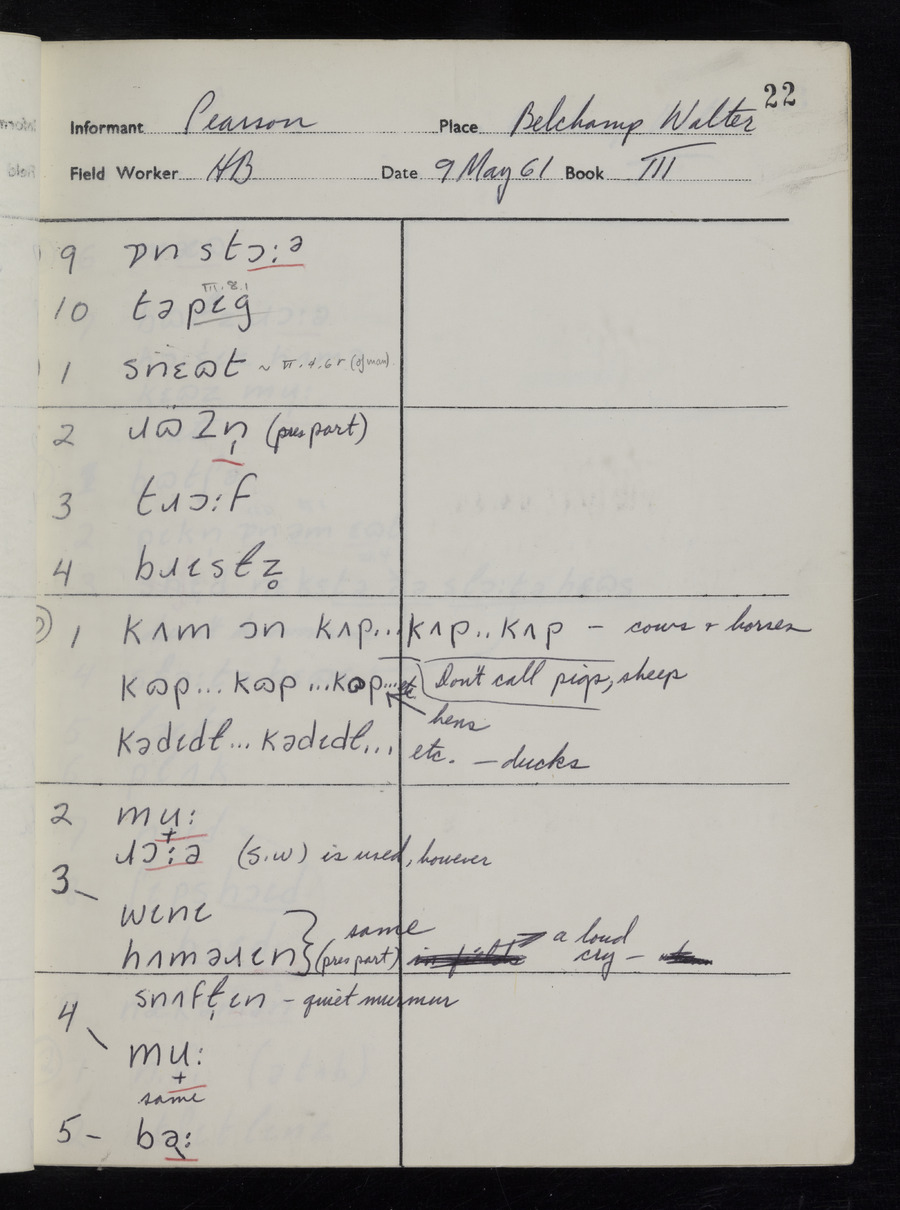 22
Informant Pearson Place Belchamp Walter
Field Worker HB Date 9 May 61 Book III
9 ɒn stɔ:ə
III.8.1
10 tə pɪg
1 snɛɷt ~ VI.4.6 r (of man)
2 ɹɷʒn̩ (pres part)
3 tɹɔ:f
4 bɹɪstl̩z̥
1 kʌm ɔn kʌp... kʌp.. kʌp – cows & horses
kɷp... kɷp ...kɷp... etc Don't call pigs, sheep
hens
kədɪdl... kədɪdl... etc. – ducks
2 mu̟:
ɹɔ:ə (s.w) is used, however
3
wɪnɪ
same
hʌməɹɪn (pres part) a loud cry –
snʌft̩ɪn – quiet murmur
4
mu̟:
same
5 – bə: